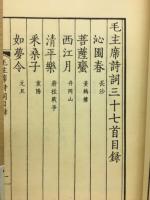 毛主席詩詞三十七首目錄
沁園春 長沙
菩薩蠻 黃鶴樓
西江月 井岡山
清平樂 蔣桂戰爭
采桑子 重陽
如夢令 元旦
毛主席詩詞目錄